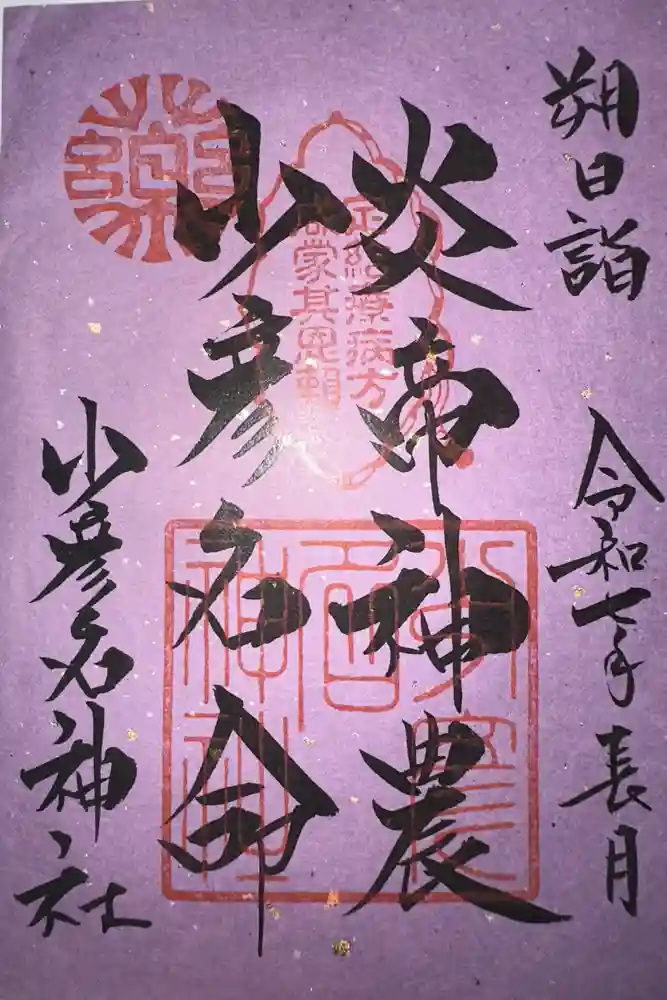 朔日詣
令和七年長月
炎帝神農
少彦名命
定給療病方
咸蒙其恩頼
少彦名神社
少彦名神社